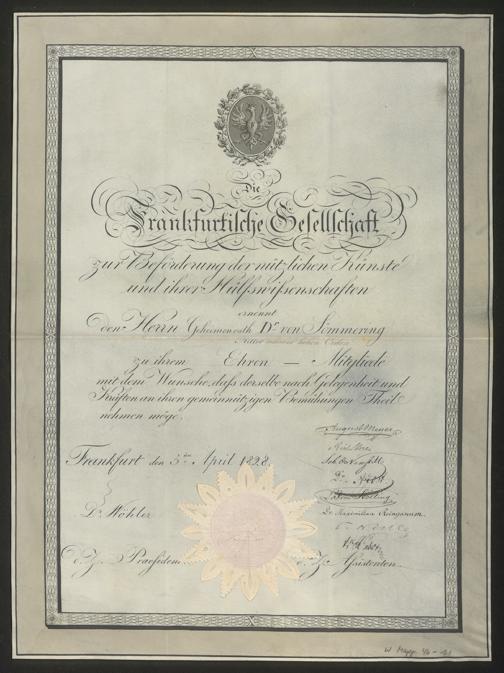 Die
Frankfurtische Gesellschaft
zur Beförderung der nützlichen Künste
und ihrer Hülfswissenschaften
ernennt
den Herrn Geheimenrath Dr von Sömmering
Ritter mehrerer hohen Orden
zu ihrem Ehren — Mitgliede
mit dem Wunsche, daß derselbe nach Gelegenheit und
Kräften an ihren gemeinnützigen Bemühungen Theil
nehmen möge.
Frankfurt den 5ten April 1828
Dr Wöhler
d. Z. Praesident
Dr. Maximilian Reinganum
d. Z. Assistenten